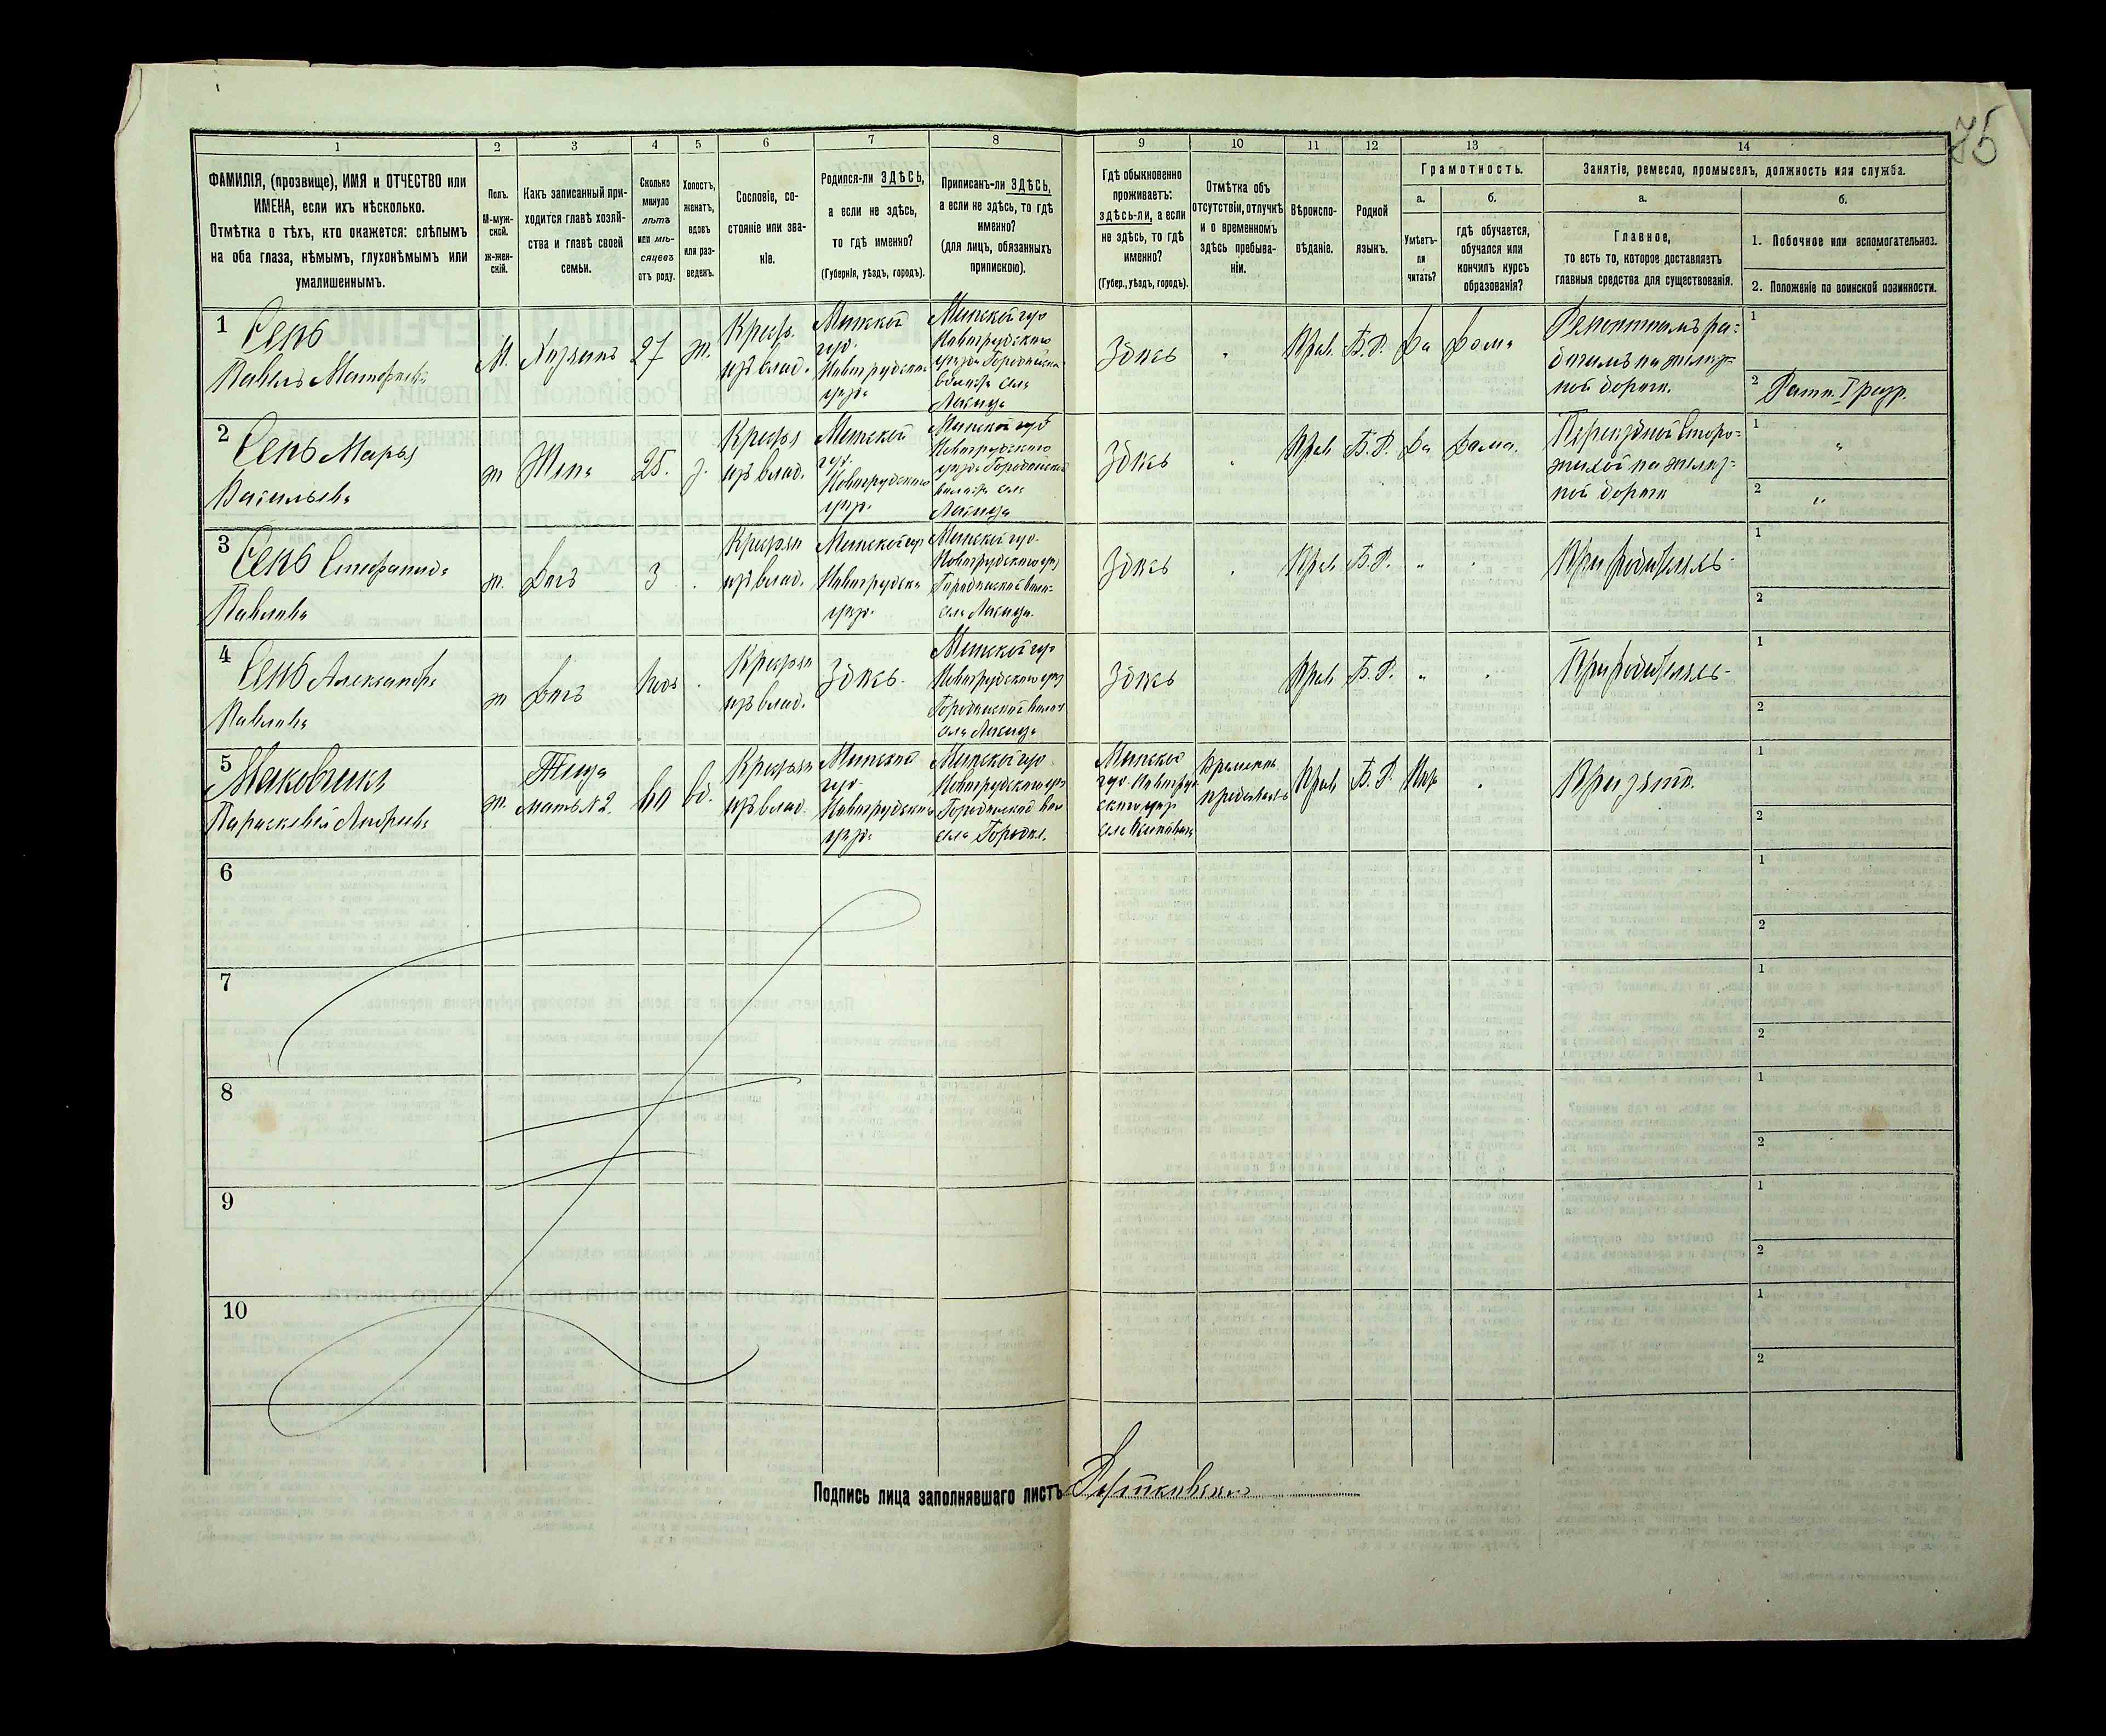 75
1
2
3
4
5
6
7
8
9
10
11
12
13
14
ФАМИЛІЯ, (прозвище), ИМЯ и ОТЧЕСТВО или
ИМЕНА, если ихъ нѣсколько.
Отмѣтка о тѣхъ, кто окажется: слѣпымъ
на оба глаза, нѣмымъ, глухонѣмымъ или
умалишеннымъ.
Полъ.
М-муж-
ской.
ж-жен-
скій.
Какъ записанный при-
ходится главѣ хозяй-
ства и главѣ своей
семьи.
Сколько
минуло
лѣтъ
или мѣ-
сяцевъ
отъ роду.
Холостъ,
женатъ,
вдовъ
или раз-
веденъ.
Сословіе, со-
стояніе или зва-
ніе.
Родился-ли ЗДѢСЬ,
а если не здѣсь,
то гдѣ именно?
(Губернія, уѣздъ, городъ).
Приписанъ-ли ЗДѢСЬ,
а если не здѣсь, то гдѣ
именно?
(для лицъ, обязанныхъ
припискою).
Гдѣ обыкновенно
проживаетъ:
здѣсь-ли, а если
не здѣсь, то гдѣ
именно?
(Губер., уѣздъ, городъ).
Отмѣтка объ
отсутствіи, отлучкѣ
и о временномъ
здѣсь пребыва-
ніи.
Вѣроиспо-
вѣданіе.
Родной
языкъ.
Грамотность.
а.
Умѣетъ-
ли
читать?
б.
гдѣ обучается,
обучался или
кончилъ курсъ
образованія?
Занятіе, ремесло, промыселъ, должность или служба.
а.
Главное,
то есть то, которое доставляетъ
главныя средства для существованія.
б.
1. Побочное или вспомогательное.
2. Положеніе по воинской повинности.
1
Сень
Павелъ
М.
Хозяинъ
27
ж.
Крест.
изъ влад.
Минской
губ.
Новогрудскаго
уѣзда
Минской губ
Новогрудскаго
уѣзда Городищской
волости села
Здѣсь
Прав.
Б.Р.
Да
Дома
Ремонтнымъ ра-
бочимъ на желѣз-
ной дорогѣ.
1
2 Ратн. I разр.
2
Сень Марья
Васильева
ж
Жена
25.
з.
Крестья
изъ влад.
Минской
губ.
Новогрудскаго
уѣзд.
Минской губ
Новогрудскаго
уѣзда Городищской
волости села
Здѣсь
Прав
Б.Р.
Да
Дома.
Переѣздной Сторо-
жихой на желѣз-
ной дорогѣ
1 "
2 "
3
Сень Стефанида
Павлова
ж.
Дочь
3
Крестьян
изъ влад.
Минской гу
Новогрудска
уѣзд.
Минской губ.
Новогрудскаго уѣз
Городищской воло-
села
Здѣсь
Прав
Б.Р.
"
При родителяхъ-
1
2
4
Сень Александра
Павлова
ж
Дочь
Крестьян
изъ влад.
Здѣсь.
Минской гу
Новогрудскаго уѣз
Городищской волост
села
Здѣсь
Прав
Б.Р.
"
При родителяхъ-
1
2
5
Параскевія Андреева
ж.
Теща
мать №2.
60
вд.
Крестьян
изъ влад.
Минской
губ.
Новогрудскаго
уѣзд.
Минской губ
Новогрудскаго уѣз
Городищской вол
села
Минской
губ. Новогруд
скаго уѣзд
села
Временно
Прав
Б.Р.
При зятѣ.
1
2
6
1
2
7
1
2
8
1
2
9
1
2
10
1
2
Подпись лица заполнявшаго листъ